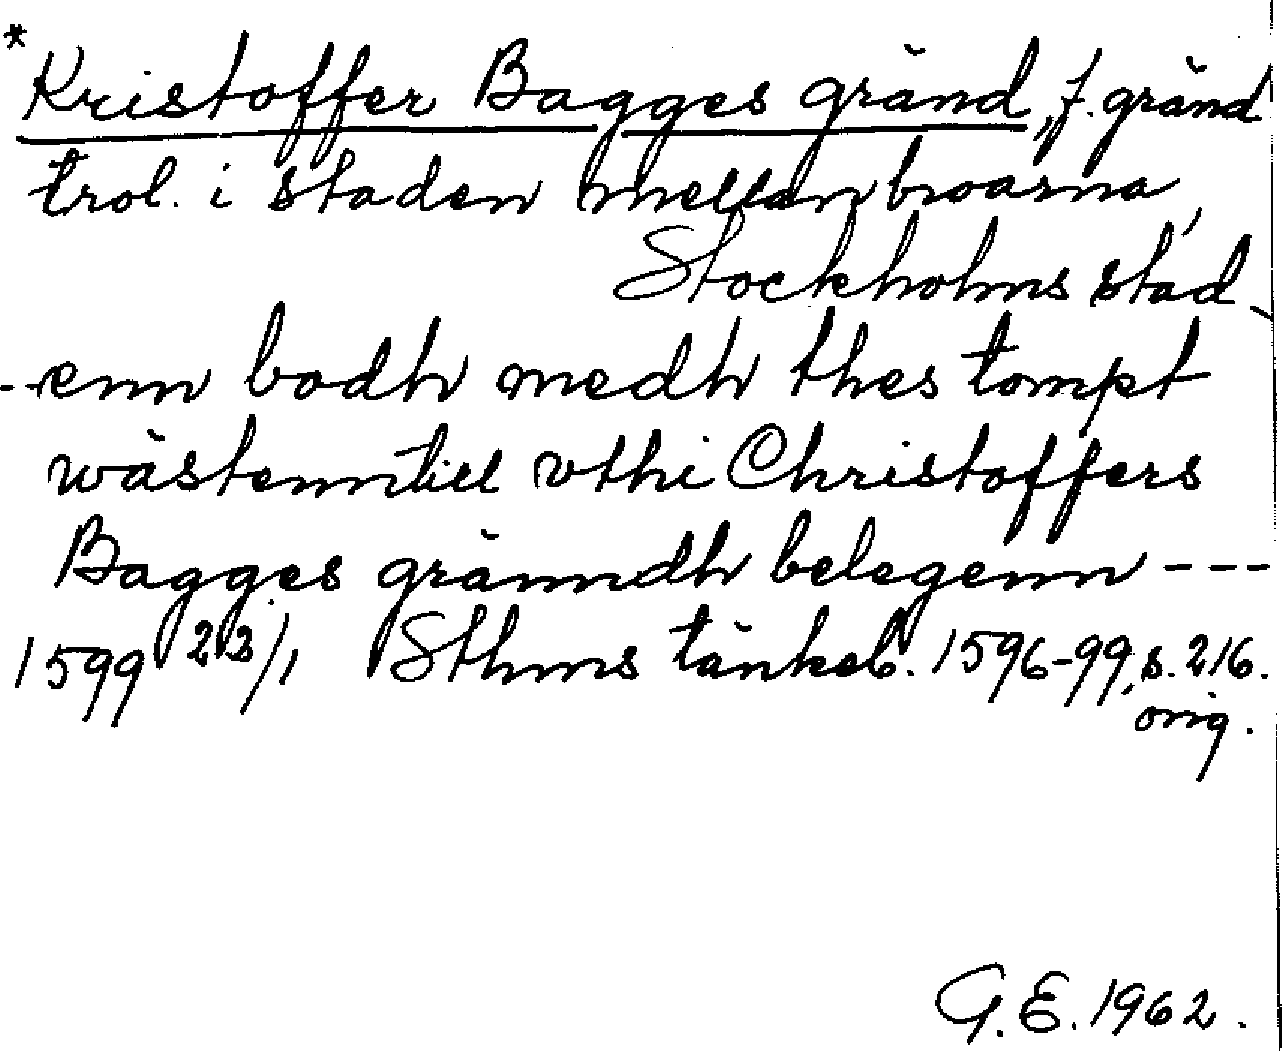 *Kristoffer Bagges gränd, f. gränd
trol. i staden mellan broarna,
Stockholms stad
--enn bodh medh thes tompt
wästenntill vthi Christoffers
Bagges gränndh belegenn ---
1599 23/1 Sthms tänkeb. 1596-99, s. 216.
orig.
G.E. 1962.